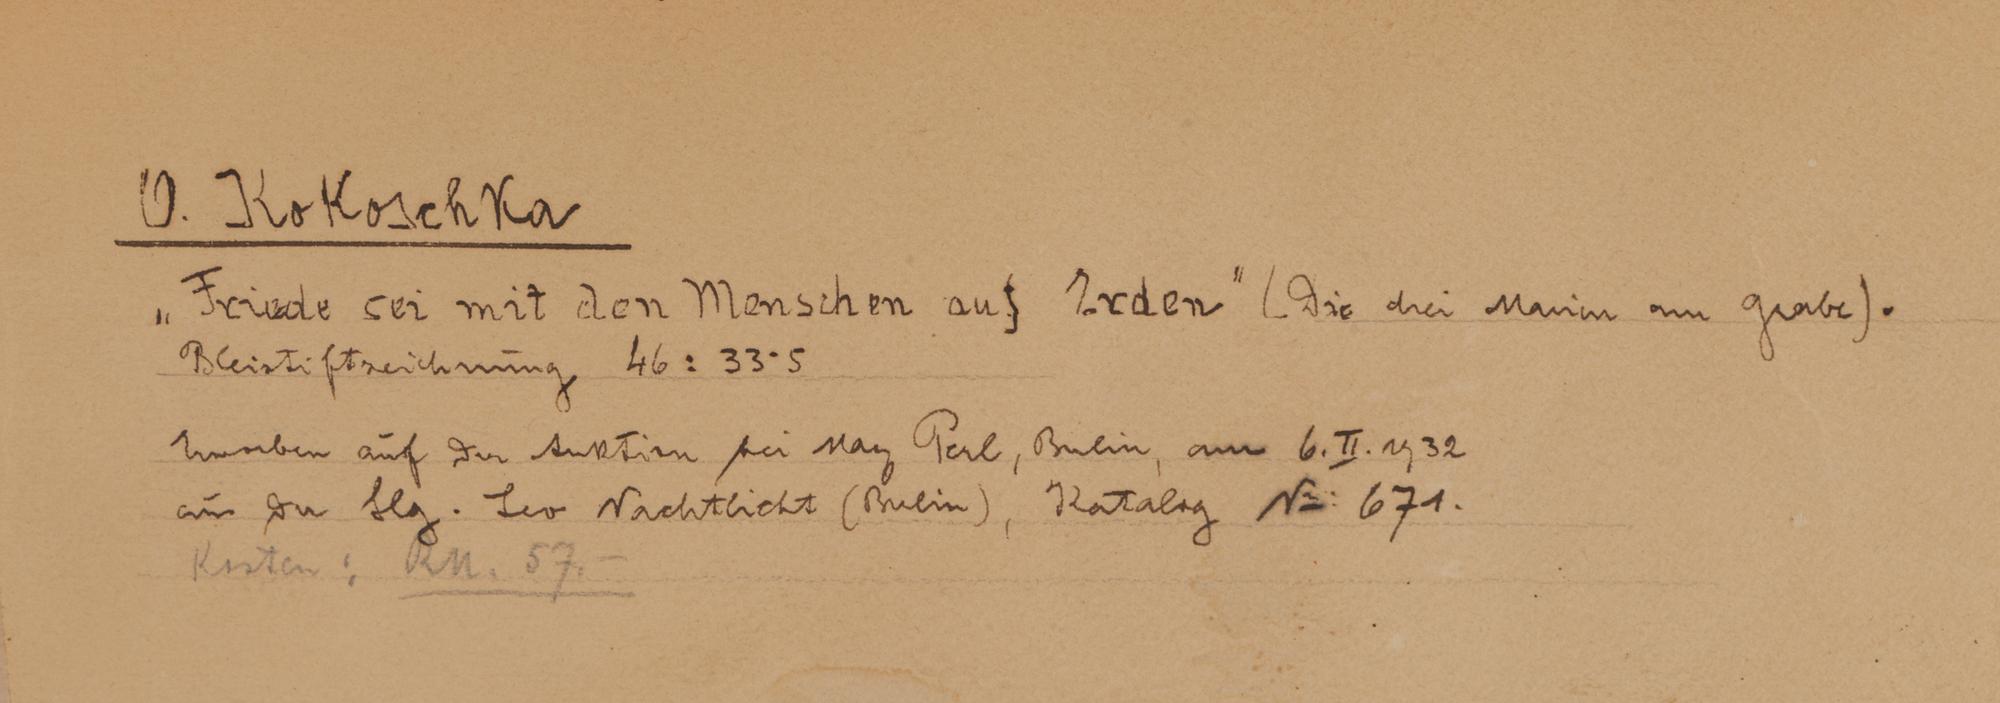 O. Kokoschka
„Friede sei mit den Menschen auf Erden" (Die drei Marien am Grabe).
Bleistiftzeichnung 46 : 33·5
Erworben auf der Auktion bei Max Perl, Berlin, am 6. II. 1932
aus der Slg. Leo Nachtlicht (Berlin), Katalog No: 671.
Kosten : RM. 57.–